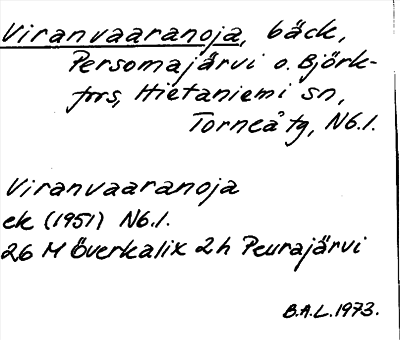 Viranvaaranoja, bäck,
Persomajärvi o. Björk-
fors, Hietaniemi sn,
Torneå tg, N6.1.
Viranvaaranoja
ek (1951) N6.1.
26 M Överkalix 2h Peurajärvi
B.A.L. 1973.